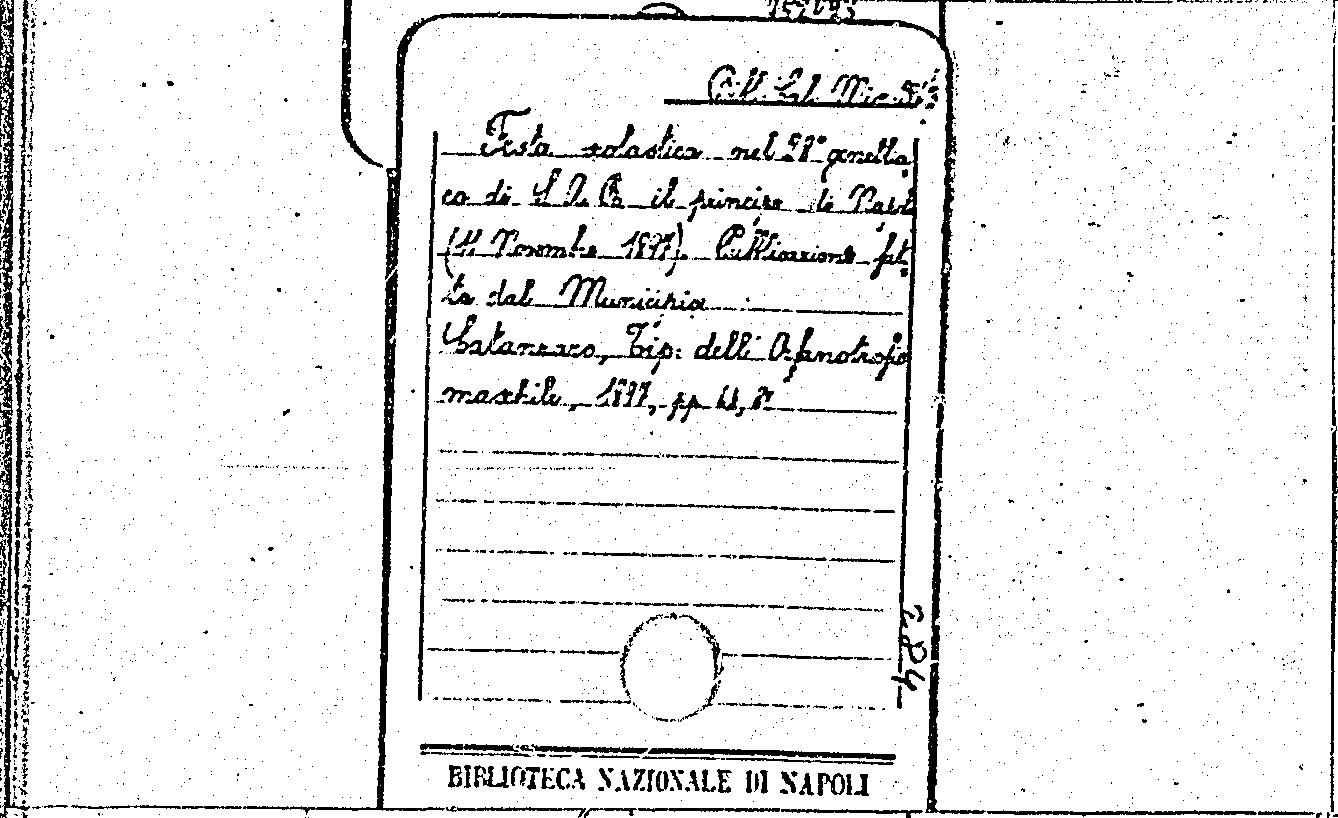 Festa scolastica nel 28° genetlia
co di S. A. R. il principe di Napoli
(11 Novembre 1897). Pubblicazione fat
ta dal Municipio
Catanzaro, Tip. dell' Orfanotrofio
maschile, 1897, pp.
284
BIBLIOTECA NAZIONALE DI NAPOLI